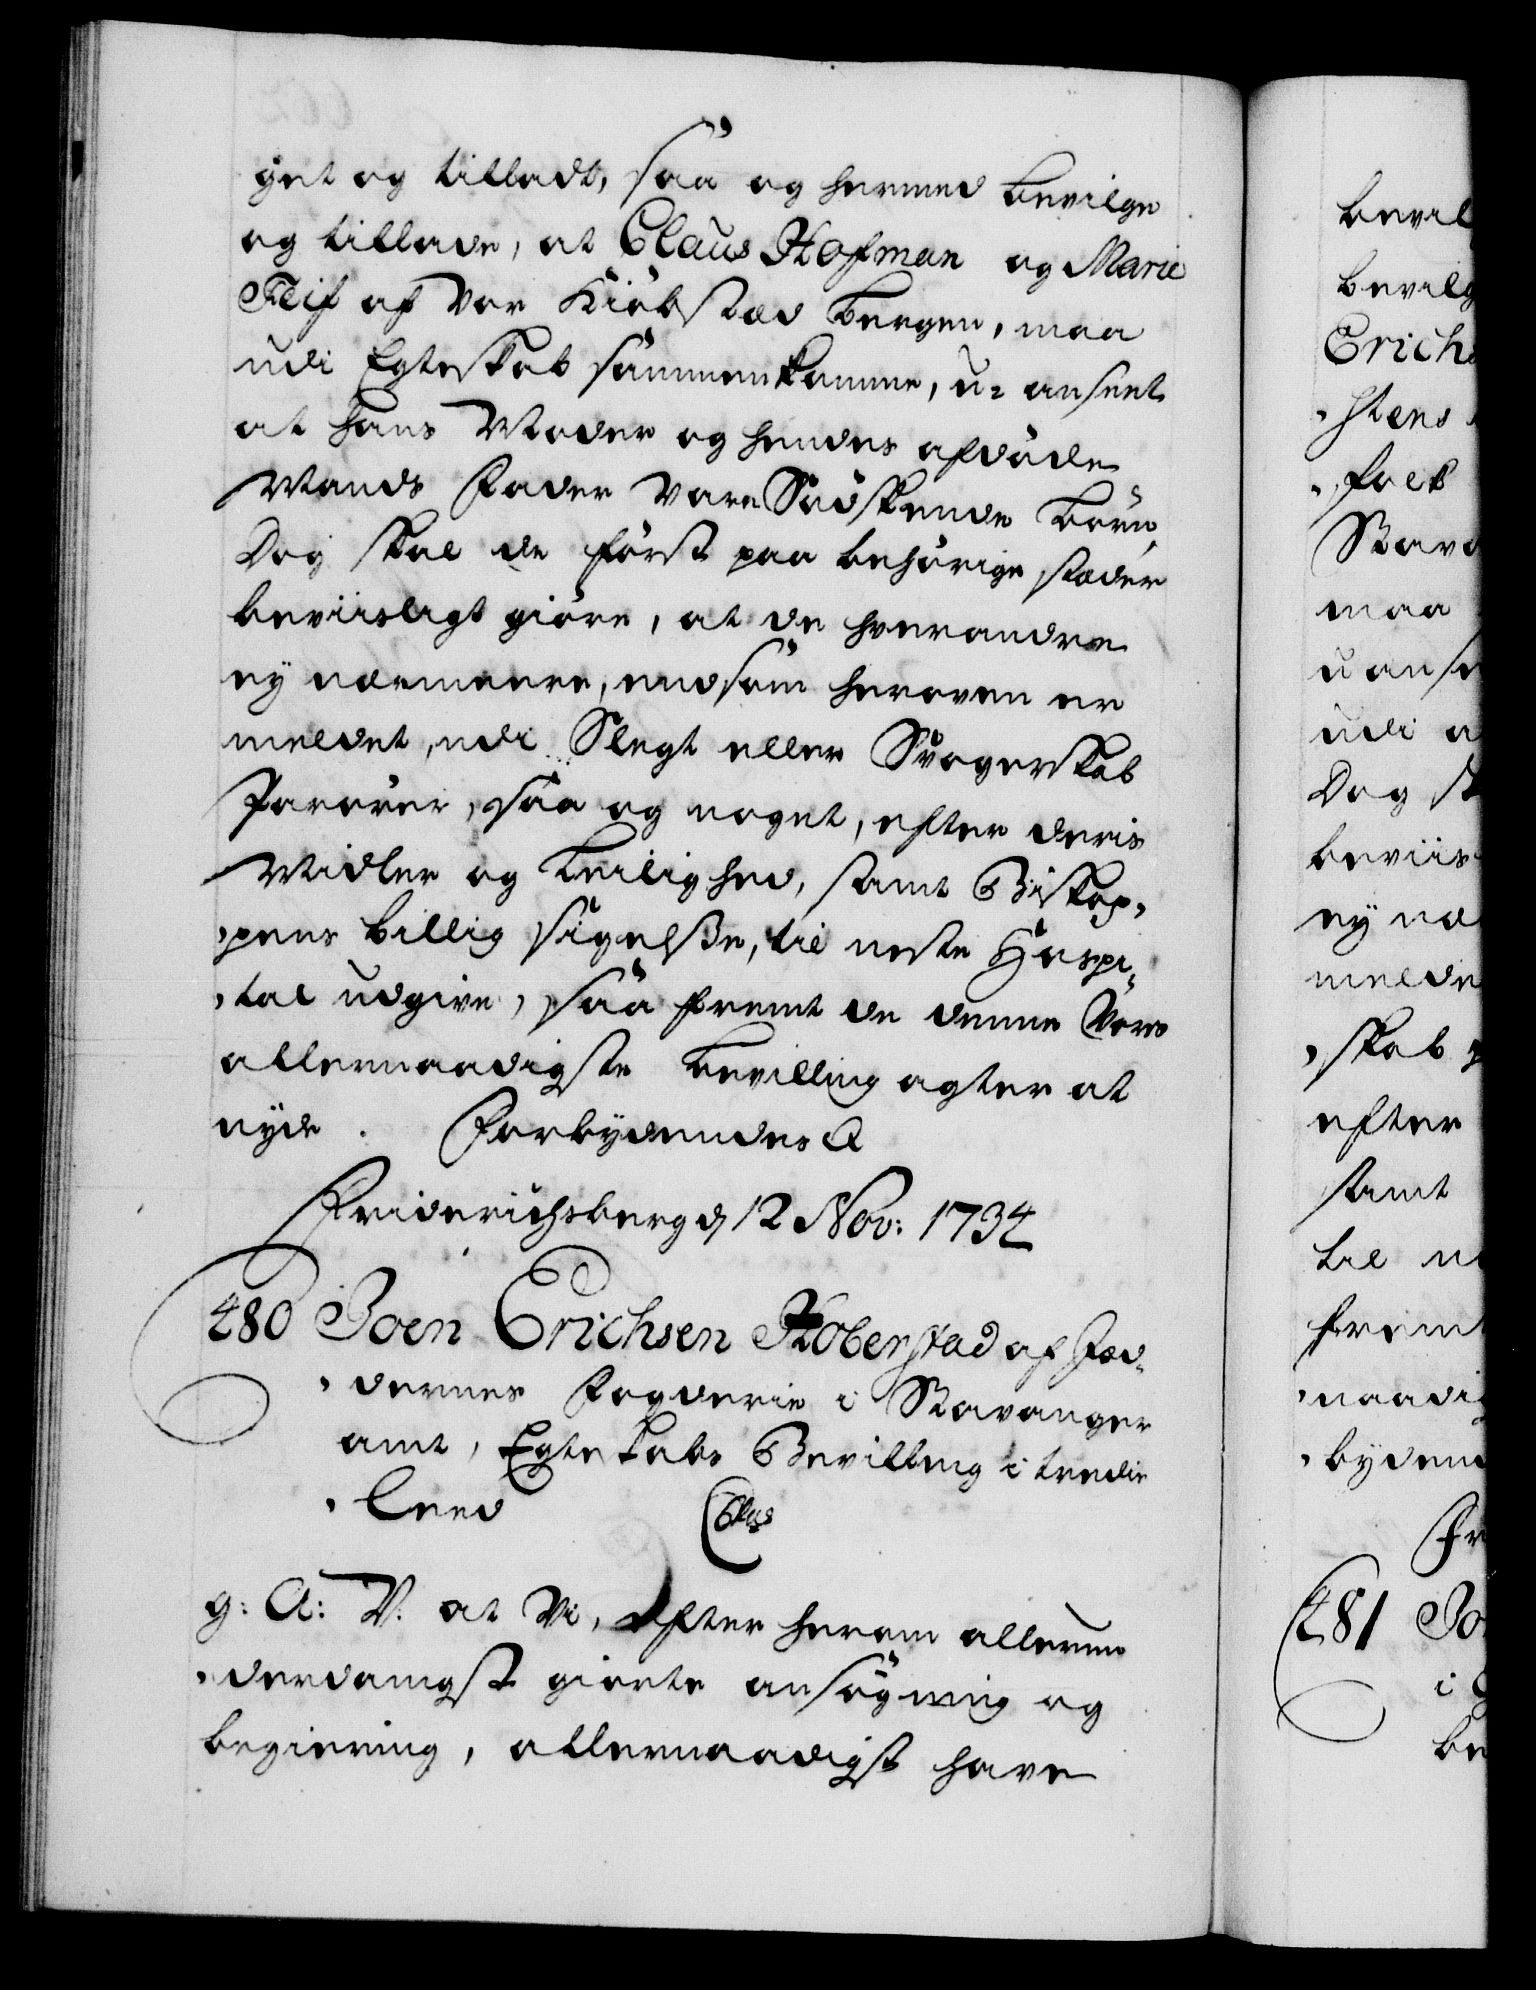 get og tilladt, saa og hermed bevilge
og tillade, at Claus Hofman og Marie
Fleis af vor Kiöbstæd Bergen, maa
udi Egteskab sammenkomme, u-anseet
at hans Moder og hendes afdöde
Mands Fader vare Södskende Börn,
Dog skal de först paa behörige stæder
beviisligt giöre, at de hverandre
ey nærmere, end som heroven er
meldet, udi Slegt eller Svogerskab
Paarörer, saa og noget, efter deris
Midler og Leilighed, samt Biskop-
pens billig sigelse, til neste Hospi-
tal udgive, saa fremt de denne Vores
allernaadigste bevilling agter at
nyde. Forbydendes &
Friderichsberg d 12 Nov: 1734
480 Joen Erichsen Koberstad af Jæd-
dernes Fogderie i Stavanger
amt, Egteskabs Bevilling i tredie
Leed
g: A: V. at Vi, Efter herom allerun-
derdanigst giorte ansögning og
begiering, allernaadigst have
bevil
bevilg
Erichs
stens
folk
Stava
maa
uanse
udi a
Dog sk
beviis
ey næ
melde
skab
efter
samt
til n
fremt
naadig
byden
Fr
481 Jo
i
be